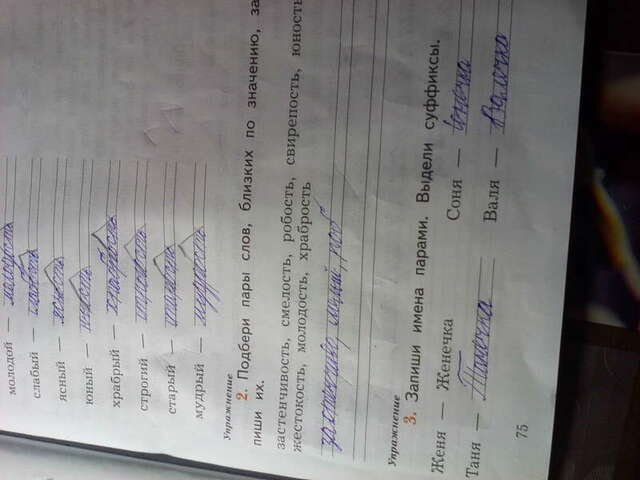 молодой — молодость
слабый — слабость
ясный — ясность
юный — юность
храбрый — храбрость
строгий — строгость
старый — старость
мудрый — мудрость
Упражнение
2. Подбери пары слов, близких по значению, за
пиши их.
застенчивость, смелость, робость, свирепость, юность
жестокость, молодость, храбрость
Упражнение
3. Запиши имена парами. Выдели суффиксы.
Женя — Женечка Соня —
Таня — Танечка Валя — Валечка
75